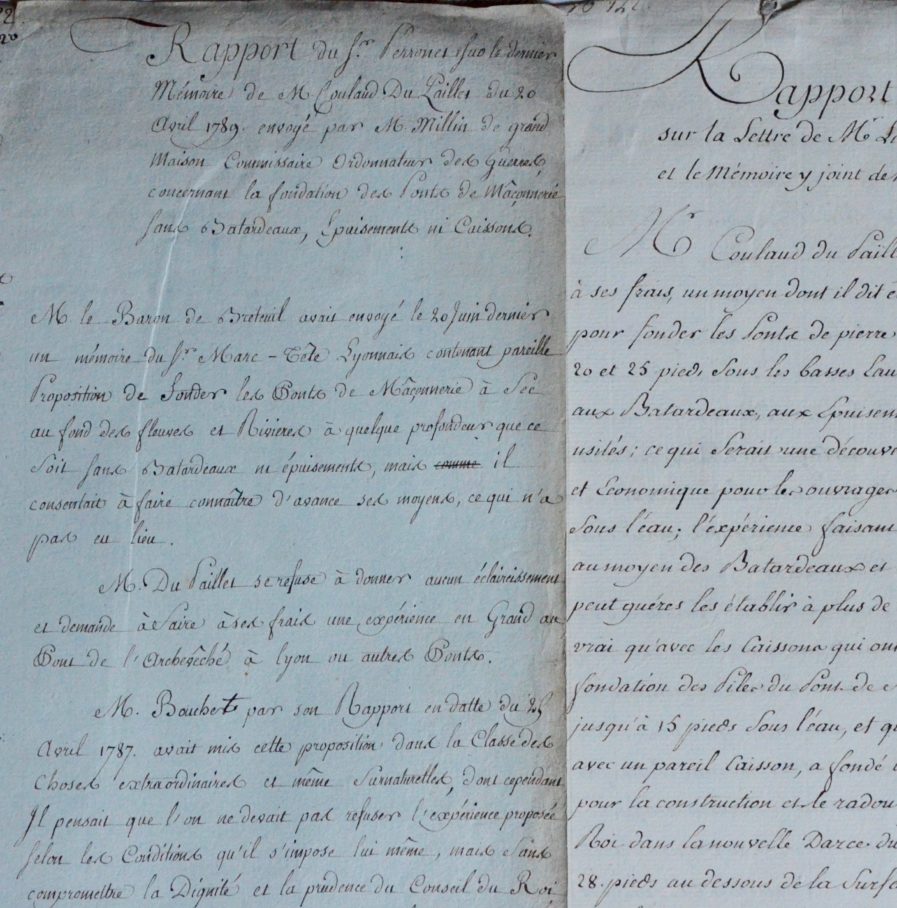 Rapport du Sr Perronet sur le dernier
Mémoire de M. Coulaud Du Paillet du 20
Avril 1789. envoyé par M. Millin de grand
Maison Commissaire Ordonnateur des Guerres,
concernant la fondation des Ponts de Mâçonnerie
sans Batardeaux, Epuisements ni Caissons.
M le Baron de Breteuil avait envoyé le 20 Juin dernier
un mémoire du Sr Marc-Tête Lyonnais contenant pareille
Proposition de Fonder les Ponts de Mâçonnerie à Sec
au fond des fleuves et Rivières à quelque profondeur que ce
Soit sans Batardeaux ni épuisements, mais comme il
consentait à faire connaître d'avance ses moyens, ce qui n'a
pas eu lieu.
M. Du Paillet se refuse à donner aucun éclaircissement
et demande à Faire à ses frais une expérience en Grand au
Pont de l'Archevêché à lyon ou autres Ponts.
M. Bouchet par son Rapport en datte du 25
Avril 1787. avait mis cette proposition dans la Classe des
Choses extraordinaires et même Surnaturelles, dont cependant
Il pensait que l'on ne devait pas refuser l'expérience proposée
selon les Conditions qu'il s'impose lui même, mais Sans
compromettre la Dignité et la prudence du Conseil du Roi
Rapport
sur la Lettre de Mr
et le Mémoire y joint
Mr Coulaud du Paill
à ses frais, un moyen dont il dit
pour fonder les Ponts de pierre
20 et 25 pieds Sous les basses Eau
aux Batardeaux, aux Epuisem
usités; ce qui Serait une découv
et Economique pour les ouvrages
Sous l'eau; l'expérience faisant
au moyen des Batardeaux et
peut guéres les établir à plus de
vrai qu'avec les Caissons qui on
fondation des Piles du Pont de
jusqu'à 15 pieds Sous l'eau, et qu
avec un pareil Caisson, a fondé
pour la construction et le radou
Roi dans la nouvelle Darce du
28. pieds au dessous de la Surfa